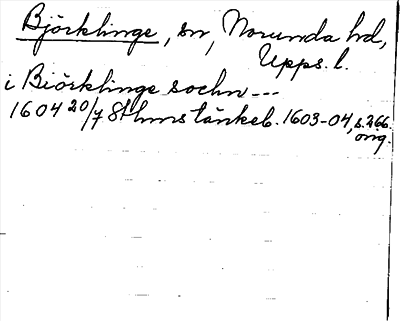 Björklinge, sn, Norunda hd,
Upps. l.
i Biörklinge sochn ---
1604 20/7 Sthms tänkeb. 1603-04, s. 266.
orig.